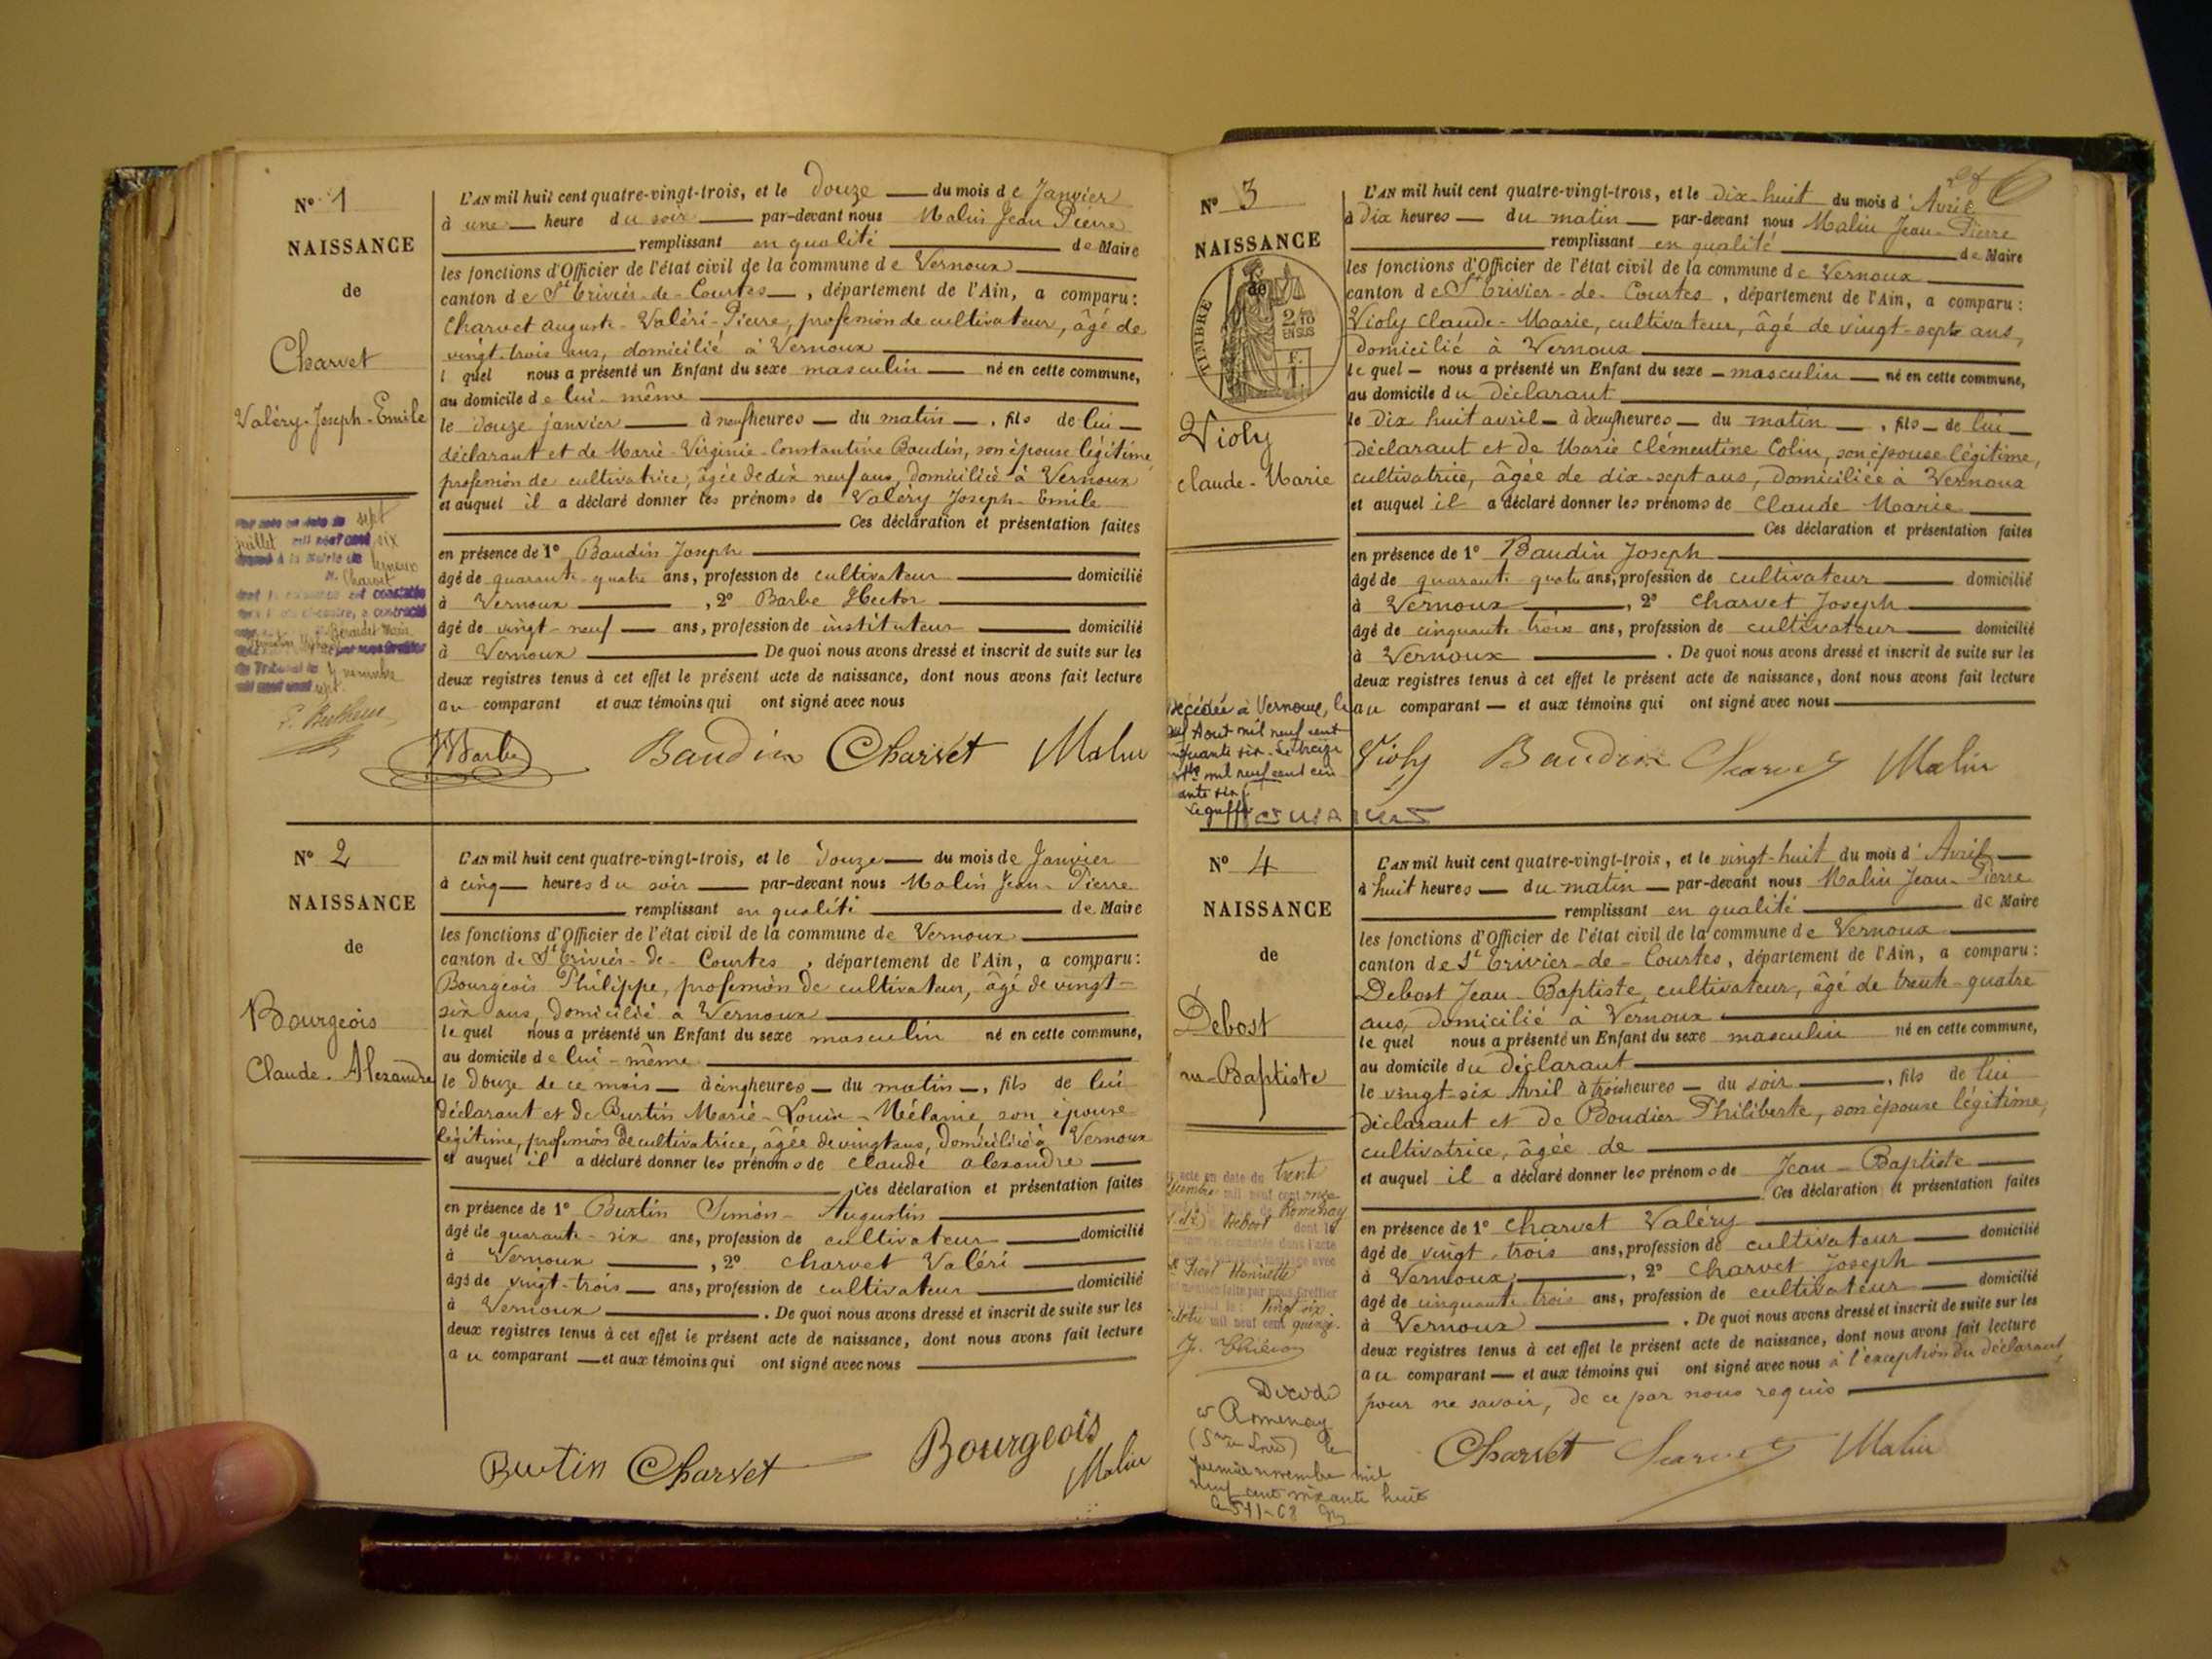 N° 1
NAISSANCE
de
Charvet
Valéry-Joseph-Emile
L'AN mil huit cent quatre-vingt-trois, et le douze du mois de Janvier
à une heure du soir par-devant nous Malin Jean Pierre
remplissant en qualité de Maire
les fonctions d'Officier de l'état civil de la commune de Vernoux
canton de St Trivier-de-Courtes, département de l'Ain, a comparu:
Charvet Auguste-Valéri-Pierre, profession de cultivateur, âgé de
vingt-trois ans, domicilié à Vernoux
l quel nous a présenté un Enfant du sexe masculin né en cette commune,
au domicile de lui-même
le douze janvier à neuf heures du matin, fils de lui
déclarant et de Marie-Virginie-Constantine Baudin, son épouse légitime,
profession de cultivatrice, âgée de dix neuf ans, domiciliée à Vernoux
et auquel il a déclaré donner les prénoms de Valéry Joseph-Emile
Ces déclaration et présentation faites
en présence de 1° Baudin Joseph
âgé de quarante-quatre ans, profession de cultivateur domicilié
à Vernoux, 2° Barbe Hector
âgé de vingt-neuf ans, profession de instituteur domicilié
à Vernoux De quoi nous avons dressé et inscrit de suite sur les
deux registres tenus à cet effet le présent acte de naissance, dont nous avons fait lecture
au comparant et aux témoins qui ont signé avec nous
sept
juillet mil neuf cent six
Vernoux
Charvet
novembre
HBarbe Baudin Charvet Malin
N° 2
NAISSANCE
de
Bourgeois
Claude-Alexandre
L'AN mil huit cent quatre-vingt-trois, et le douze du mois de Janvier
à cinq heures du soir par-devant nous Malin Jean-Pierre
remplissant en qualité de Maire
les fonctions d'Officier de l'état civil de la commune de Vernoux
canton de St Trivier-de-Courtes, département de l'Ain, a comparu:
Bourgeois Philippe, profession de cultivateur, âgé de vingt-
six ans, domicilié à Vernoux
le quel nous a présenté un Enfant du sexe masculin né en cette commune,
au domicile de lui-même
le douze de ce mois à cinq heures du matin, fils de lui
déclarant et de Burtin Marie-Louise-Mélanie, son épouse
légitime, profession de cultivatrice, âgée de vingt ans, domiciliée à Vernoux
et auquel il a déclaré donner les prénoms de Claude Alexandre
Ces déclaration et présentation faites
en présence de 1° Burtin Simon-Augustin
âgé de quarante-six ans, profession de cultivateur domicilié
à Vernoux, 2° Charvet Valéri
âgé de vingt-trois ans, profession de cultivateur domicilié
à Vernoux. De quoi nous avons dressé et inscrit de suite sur les
deux registres tenus à cet effet le présent acte de naissance, dont nous avons fait lecture
au comparant et aux témoins qui ont signé avec nous
Burtin Charvet Bourgeois
Malin
N° 3
NAISSANCE
de
TIMBRE
2/10
EN SUS
Violy
Claude-Marie
L'AN mil huit cent quatre-vingt-trois, et le dix-huit du mois d'Avril
à dix heures du matin par-devant nous Malin Jean-Pierre
remplissant en qualité de Maire
les fonctions d'Officier de l'état civil de la commune de Vernoux
canton de St Trivier-de-Courtes, département de l'Ain, a comparu:
Violy Claude-Marie, cultivateur, âgé de vingt-sept ans,
domicilié à Vernoux
le quel nous a présenté un Enfant du sexe masculin né en cette commune,
au domicile du déclarant
le dix huit avril à deux heures du matin, fils de lui
déclarant et de Marie Clémentine Colin, son épouse légitime,
cultivatrice, âgée de dix-sept ans, domiciliée à Vernoux
et auquel il a déclaré donner les prénoms de Claude Marie
Ces déclaration et présentation faites
en présence de 1° Baudin Joseph
âgé de quarante quatre ans, profession de cultivateur domicilié
à Vernoux, 2° Charvet Joseph
âgé de cinquante trois ans, profession de cultivateur domicilié
à Vernoux. De quoi nous avons dressé et inscrit de suite sur les
deux registres tenus à cet effet le présent acte de naissance, dont nous avons fait lecture
au comparant et aux témoins qui ont signé avec nous
Décédée à Vernoux, le
Aout mil neuf cent
quante six. Le treize
mil neuf cent cin
ante six
Violy Baudin Charvet Malin
N° 4
NAISSANCE
de
Debost
an-Baptiste
L'AN mil huit cent quatre-vingt-trois, et le vingt-huit du mois d'Avril
à huit heures du matin par-devant nous Malin Jean-Pierre
remplissant en qualité de Maire
les fonctions d'Officier de l'état civil de la commune de Vernoux
canton de St Trivier-de-Courtes, département de l'Ain, a comparu:
Debost Jean-Baptiste, cultivateur, âgé de trente-quatre
ans, domicilié à Vernoux
le quel nous a présenté un Enfant du sexe masculin né en cette commune,
au domicile du déclarant
le vingt-six Avril à trois heures du soir, fils de lui
déclarant et de Boudier Philiberte, son épouse légitime,
cultivatrice, âgée de
et auquel il a déclaré donner les prénoms de Jean-Baptiste
Ces déclaration et présentation faites
en présence de 1° Charvet Valéry
âgé de vingt-trois ans, profession de cultivateur domicilié
à Vernoux, 2° Charvet Joseph
âgé de cinquante trois ans, profession de cultivateur domicilié
à Vernoux. De quoi nous avons dressé et inscrit de suite sur les
deux registres tenus à cet effet le présent acte de naissance, dont nous avons fait lecture
au comparant et aux témoins qui ont signé avec nous à l'exception du déclarant
pour ne savoir, de ce par nous requis
acte en date du trente
mil neuf cent onze
Romenay
Debost
Henriette
vingt six
mil neuf cent quinze.
Décédé
à Romenay
le
premier novembre mil
neuf cent soixante huit
Charvet Charvet Malin